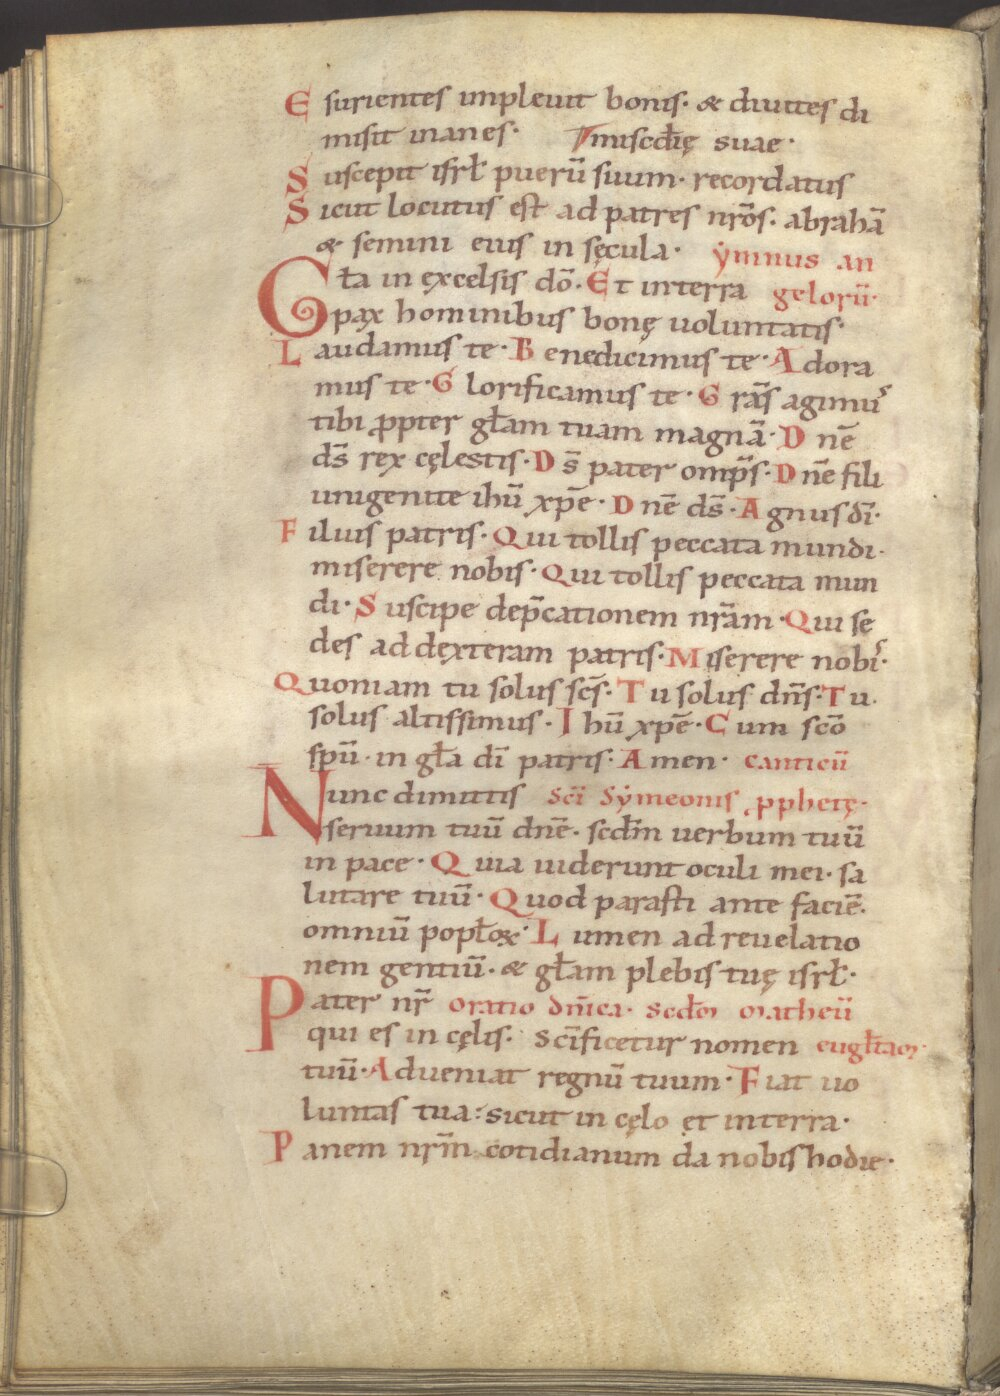 Esurientes impleuit bonis· & diuites di
misit inanes· miscdię suae·
Suscepit isrł puerū suum· recordatus
Sicut locutus est ad patres nr̄os· abrahā
& semini eius in sęcula· ymnus an
Gła in excelsis dō· Et in terra gelorū·
pax hominibus bonę uoluntatis·
Laudamus te· Benedicimus te· Adora
mus te· Glorificamus te· Grās agimus
tibi ꝓpter głam tuam magnā· Dnē
ds̄ rex cęlestis· Ds̄ pater omp̄s· Dnē fili
unigenite ihū xp̄e· Dnē ds̄· Agnus dī·
Filius patris· Qui tollis peccata mundi·
miserere nobis· Qui tollis peccata mun
di· Suscipe dep̄cationem nr̄am· Qui se
des ad dexteram patris· Miserere nobis·
Quoniam tu solus scs̄· Tu solus dn̄s· Tu·
solus altissimus· Ihū xp̄e· Cum scō
spū· in gła dī patris· Amen· canticū
Nunc dimittis scī symeonis ꝓphetę·
seruum tuū dnē· scdm̄ uerbum tuū
in pace· Quia uiderunt oculi mei· sa
lutare tuū· Quod parasti ante faciē·
omniū popłoꝝ· Lumen ad reuelatio
nem gentiū· & głam plebis tuę isrł·
Pater nr̄ oratio dn̄ica· scdm̄ matheū
qui es in cęlis· scīficetur nomen eugłtam·
tuū· Adueniat regnū tuum· Fiat uo
luntas tua: sicut in cęlo et in terra·
Panem nr̄m cotidianum da nobis hodie·